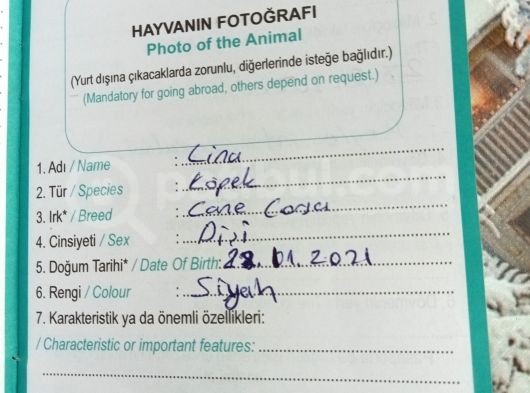 HAYVANIN FOTOĞRAFI
Photo of the Animal
(Yurt dışına çıkacaklarda zorunlu, diğerlerinde isteğe bağlıdır.)
(Mandatory for going abroad, others depend on request.)
1. Adı / Name : Cina
2. Tür / Species : Köpek
3. Irk* / Breed : Cane Corso
4. Cinsiyeti / Sex : Dişi
5. Doğum Tarihi* / Date Of Birth: 28.01.2021
6. Rengi / Colour : Siyah
7. Karakteristik ya da önemli özellikleri:
/ Characteristic or important features: